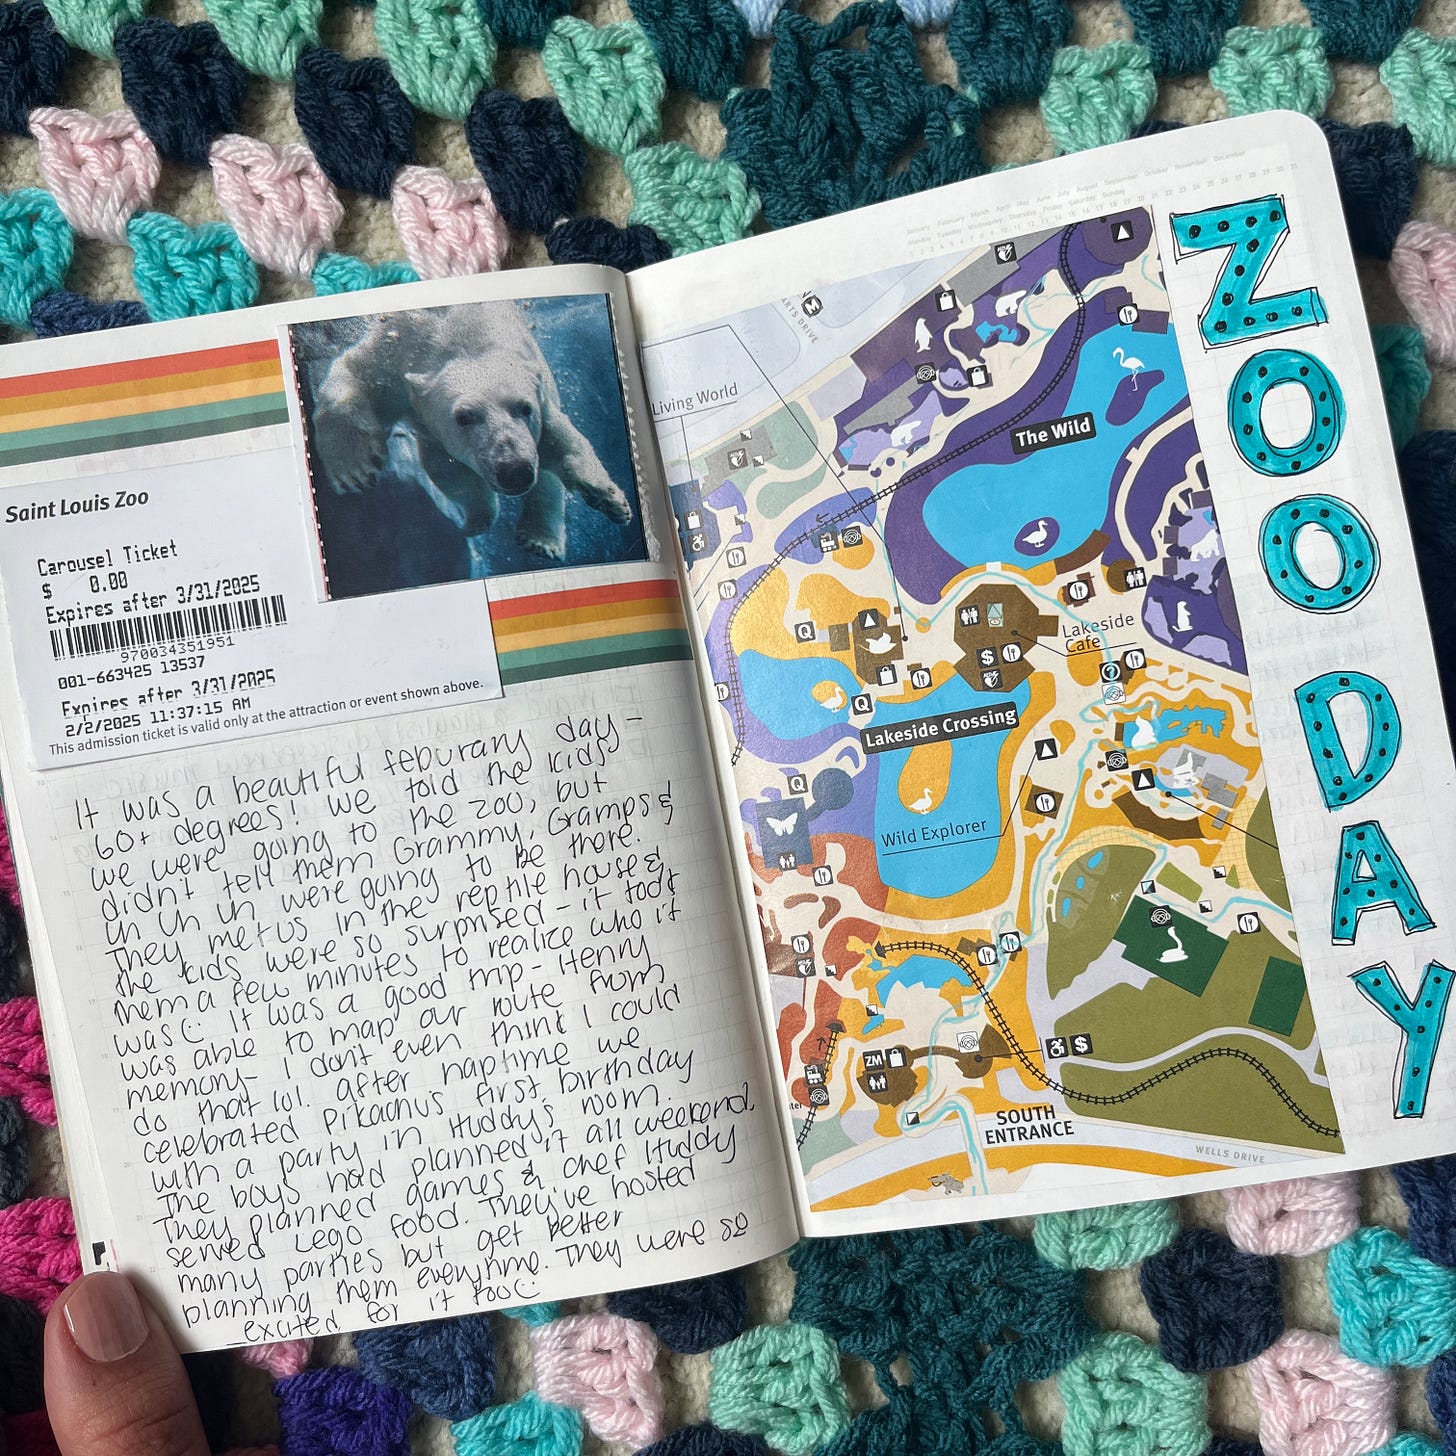 Saint Louis Zoo
Carousel Ticket
$ 0.00
Expires after 3/31/2025
970034351951
001-663425 13537
Expires after 3/31/2025
2/2/2025 11:37:15 AM
This admission ticket is valid only at the attraction or event shown above.
It was a beautiful feburary day -
60+ degrees! we told the kids
we were going to the zoo, but
didn't tell them Grammy, Gramps &
Uh Uh were going to be there.
They met us in the reptile house &
the kids were so surprised - it took
them a few minutes to realize who it
was It was a good trip - Henny
was able to map our route from
memory - I don't even think I could
do that lol. after naptime we
celebrated Pikachu's first birthday
with a party in Huddy's room.
The boys had planned it all weekend.
They planned games & chef Huddy
served Lego food. They've hosted
many parties but get better
planning them everytime. They were so
excited for it too
January February March April May June July August September October November December
Monday Tuesday Wednesday Thursday Friday Saturday Sunday
ARTS DRIVE
Living World
The Wild
Lakeside
Cafe
Lakeside Crossing
Wild Explorer
Q
Q
Q
ZM
$
$
SOUTH
ENTRANCE
WELLS DRIVE
ZOO DAY